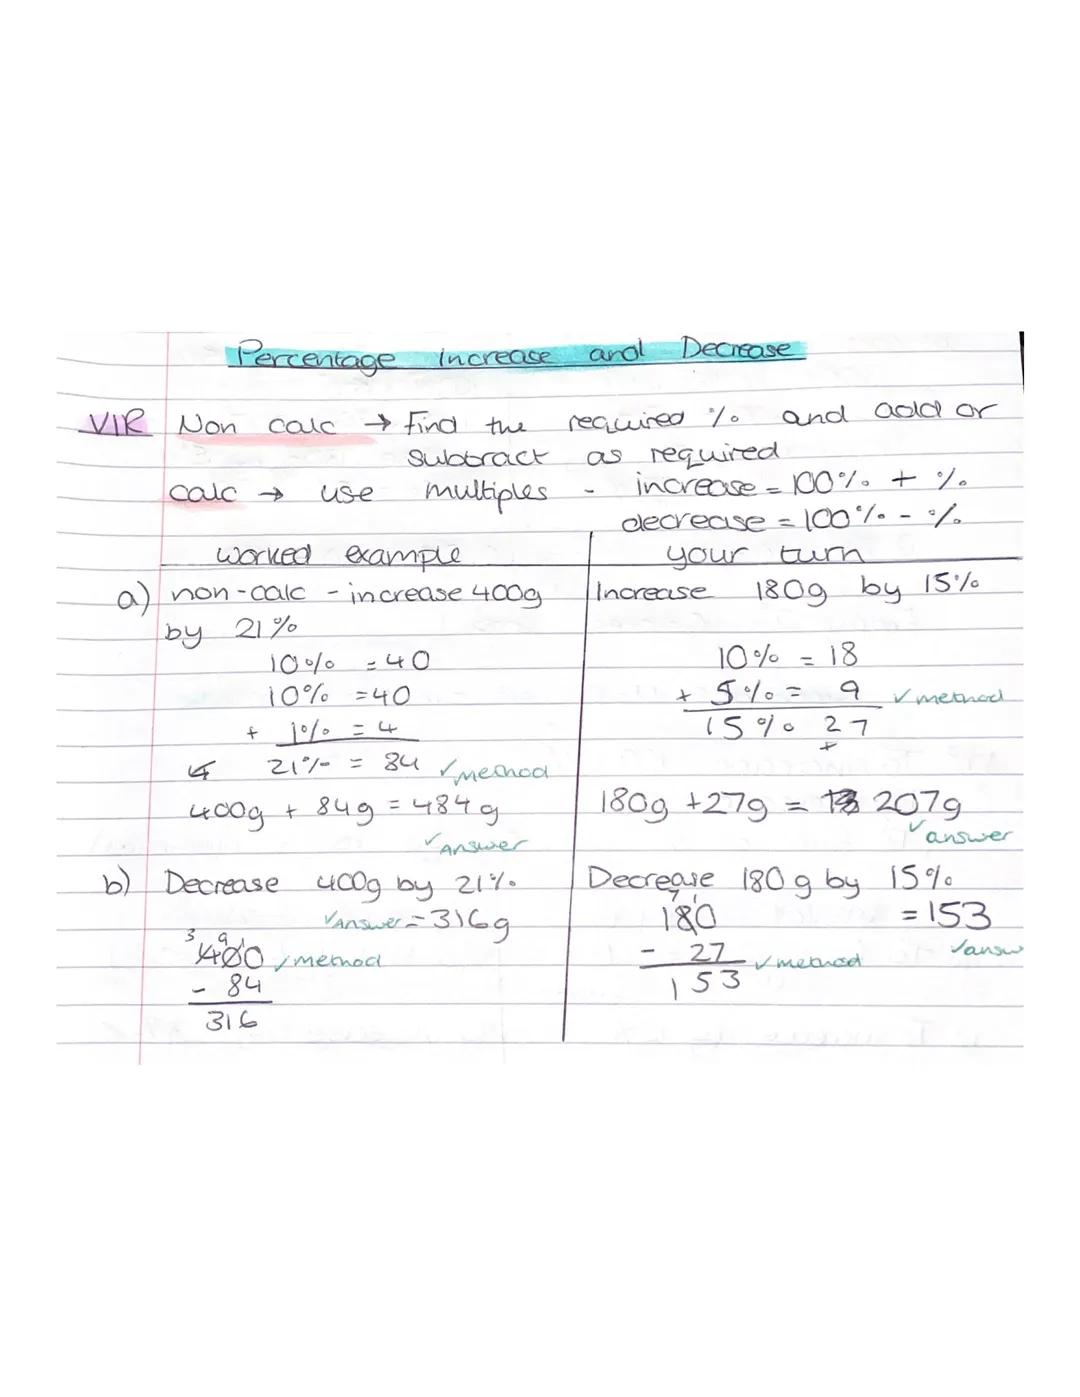 Percentage increase and Decrease
VIR Non calc → Find the required % and add or
subtract as required
calc → use multiples - increase = 100% + %
decrease = 100% - %
worked example
a) non-calc - increase 400g
by 21%
10% = 40
10% = 40
+ 1% = 4
21% = 84 ✓method
400g + 84g = 484g
✓Answer
b) Decrease 400g by 21%
✓Answer = 316g
3 9 1
400 ✓method
- 84
316
your turn
Increase 180g by 15%
10% = 18
+ 5% = 9 ✓method
15% 27
180g + 27g = 207g
✓answer
Decrease 180g by 15%
7 1
180 = 153
✓answ
- 27 ✓method
153